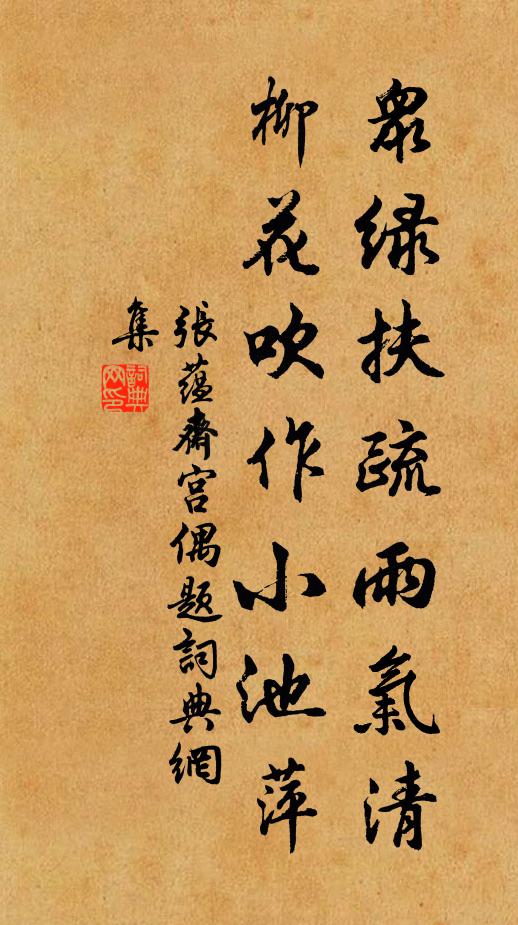 眾綠扶疏雨氣清
柳花吹作小池萍
張蘊齋宮偶題詞典網
集
詞典網印